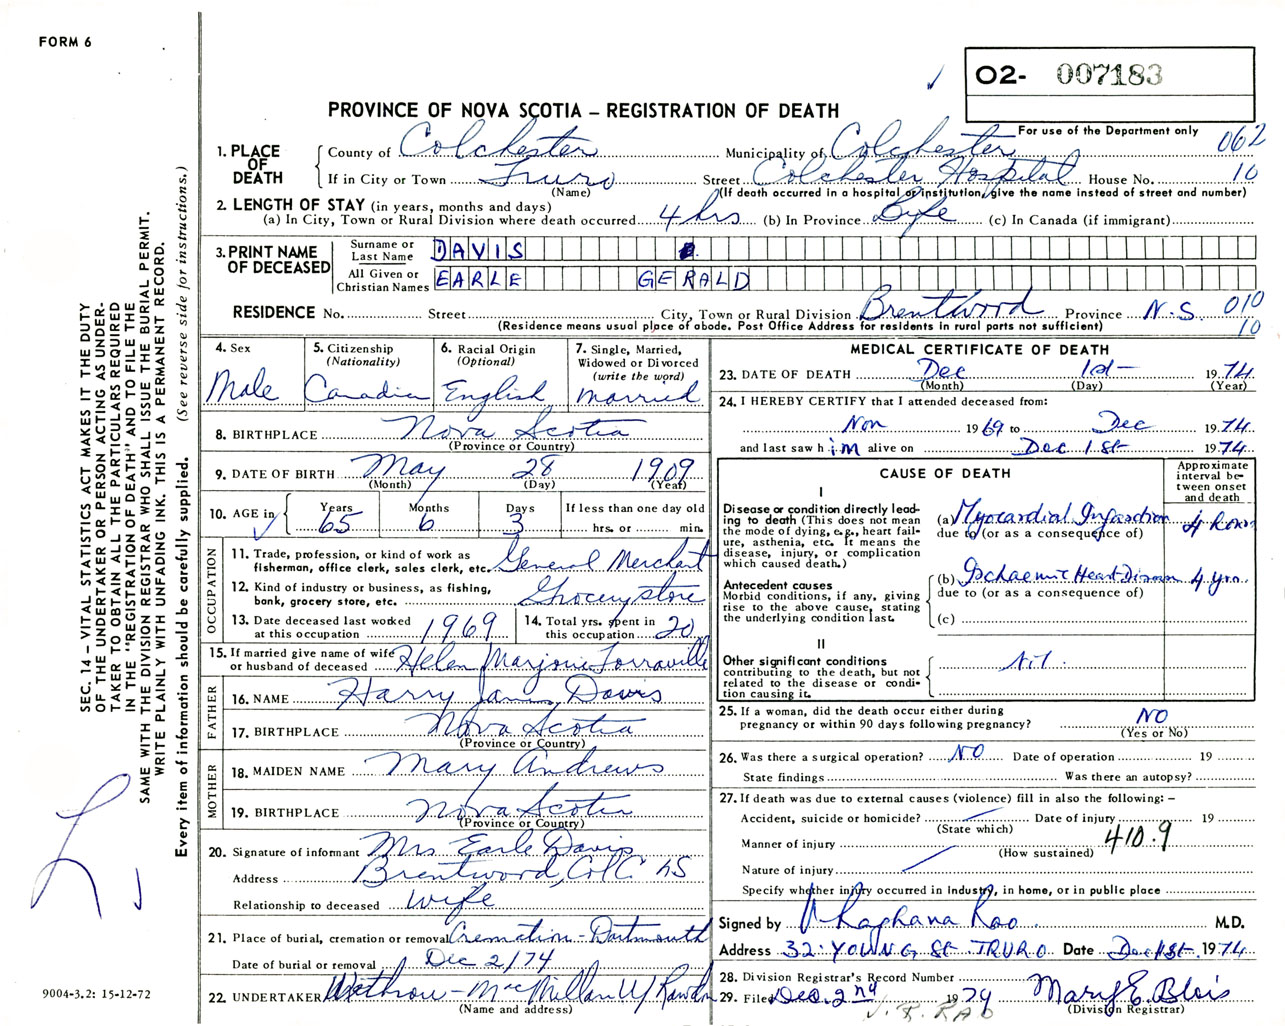 FORM 6
O2- 007183
PROVINCE OF NOVA SCOTIA – REGISTRATION OF DEATH
For use of the Department only
062
1. PLACE OF DEATH
County of Colchester Municipality of Colchester
If in City or Town Truro Street Colchester Hospital House No. 10
(Name) (If death occurred in a hospital or institution, give the name instead of street and number)
2. LENGTH OF STAY (in years, months and days)
(a) In City, Town or Rural Division where death occurred 4 hrs (b) In Province Life (c) In Canada (if immigrant)
3. PRINT NAME OF DECEASED
Surname or Last Name DAVIS
All Given or Christian Names EARLE GERALD
RESIDENCE No. Street City, Town or Rural Division Brentwood Province N.S. 010
10
(Residence means usual place of abode. Post Office Address for residents in rural parts not sufficient)
4. Sex
Male
5. Citizenship
(Nationality)
Canadian
6. Racial Origin
(Optional)
English
7. Single, Married, Widowed or Divorced
(write the word)
married
8. BIRTHPLACE Nova Scotia
(Province or Country)
9. DATE OF BIRTH May 28 1909
(Month) (Day) (Year)
10. AGE in Years Months Days If less than one day old
65 6 3 hrs. or min.
OCCUPATION
11. Trade, profession, or kind of work as
fisherman, office clerk, sales clerk, etc. General Merchant
12. Kind of industry or business, as fishing,
bank, grocery store, etc. Grocery store
13. Date deceased last worked
at this occupation 1969
14. Total yrs. spent in
this occupation 20
15. If married give name of wife
or husband of deceased Helen Marjorie
FATHER
16. NAME Harry James Davis
17. BIRTHPLACE Nova Scotia
(Province or Country)
MOTHER
18. MAIDEN NAME Mary Andrews
19. BIRTHPLACE Nova Scotia
(Province or Country)
20. Signature of informant Mrs Earle Davis
Address Brentwood, Col. C NS
Relationship to deceased wife
21. Place of burial, cremation or removal Cremation - Dartmouth
Date of burial or removal Dec 2/74
22. UNDERTAKER
(Name and address)
MEDICAL CERTIFICATE OF DEATH
23. DATE OF DEATH Dec 1st 1974
(Month) (Day) (Year)
24. I HEREBY CERTIFY that I attended deceased from:
Nov 1969 to Dec 1974
and last saw him alive on Dec 1st 1974
CAUSE OF DEATH
Approximate interval between onset and death
I
Disease or condition directly lead-
ing to death (This does not mean
the mode of dying, e.g., heart fail-
ure, asthenia, etc. It means the
disease, injury, or complication
which caused death.)
(a) Myocardial Infarction 4 hours
due to (or as a consequence of)
Antecedent causes
Morbid conditions, if any, giving
rise to the above cause, stating
the underlying condition last.
(b) Ischaemic Heart Disease 4 yrs.
due to (or as a consequence of)
(c)
II
Other significant conditions
contributing to the death, but not
related to the disease or condi-
tion causing it.
Nil.
25. If a woman, did the death occur either during
pregnancy or within 90 days following pregnancy? NO
(Yes or No)
26. Was there a surgical operation? NO Date of operation 19
State findings Was there an autopsy?
27. If death was due to external causes (violence) fill in also the following: –
Accident, suicide or homicide? Date of injury 19
(State which)
Manner of injury 410.9
(How sustained)
Nature of injury
Specify whether injury occurred in Industry, in home, or in public place
Signed by Raghava Rao M.D.
Address 32: YOUNG St TRURO Date Dec 1st 1974
28. Division Registrar's Record Number
29. Filed Dec. 2nd 1974 Mary E. Blois
(Division Registrar)
V. R. RAO
SEC. 14 – VITAL STATISTICS ACT MAKES IT THE DUTY
OF THE UNDERTAKER OR PERSON ACTING AS UNDER-
TAKER TO OBTAIN ALL THE PARTICULARS REQUIRED
IN THE "REGISTRATION OF DEATH" AND TO FILE THE
SAME WITH THE DIVISION REGISTRAR WHO SHALL ISSUE THE BURIAL PERMIT.
WRITE PLAINLY WITH UNFADING INK. THIS IS A PERMANENT RECORD.
Every item of information should be carefully supplied. (See reverse side for instructions.)
9004-3.2: 15-12-72